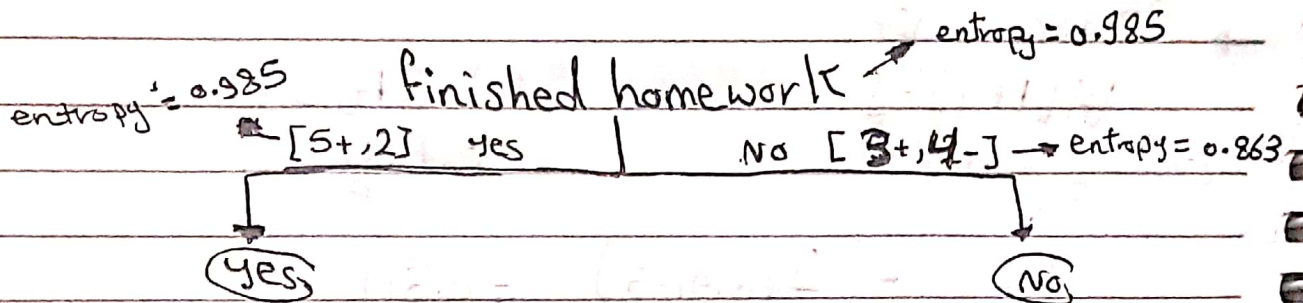 entropy = 0.985
entropy = 0.985 finished homework
[5+,2] yes No [3+,4-] → entropy = 0.863
yes No